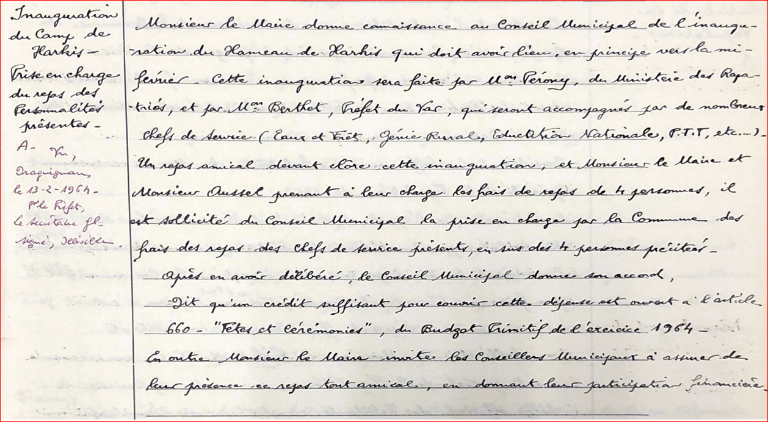 Inauguration
du Camp de
Harkis -
Prise en charge
du repas des
Personnalités
présentes -
A- Vu,
Draguignan,
le 13-2-1964-
P. le Préfet,
le secrétaire gl
signé,
Monsieur le Maire donne connaissance au Conseil Municipal de l'inaugu-
ration du Hameau de Harkis qui doit avoir lieu, en principe vers la mi-
février. Cette inauguration sera faite par Mon Pérony, du Ministère des Rapa-
-triés, et par Mon Berthet, Préfet du Var, qui seront accompagnés par de nombreux
chefs de service (Eaux et Forêt, Génie Rural, Education Nationale, P.T.T, etc...)-
Un repas amical devant clôre cette inauguration, et Monsieur le Maire et
Monsieur Aussel prenant à leur charge les frais de repas de 4 personnes, il
est sollicité du Conseil Municipal la prise en charge par la Commune des
frais des repas des chefs de service présents, en sus des 4 personnes précitées-
Après en avoir délibéré, le Conseil Municipal donne son accord,
Dit qu'un crédit suffisant pour couvrir cette dépense est ouvert à l'article
660 - "Fêtes et Cérémonies", du Budget Primitif de l'exercice 1964 -
En outre Monsieur le Maire invite les Conseillers Municipaux à assurer de
leur présence ce repas tout amical, en donnant leur participation financière-